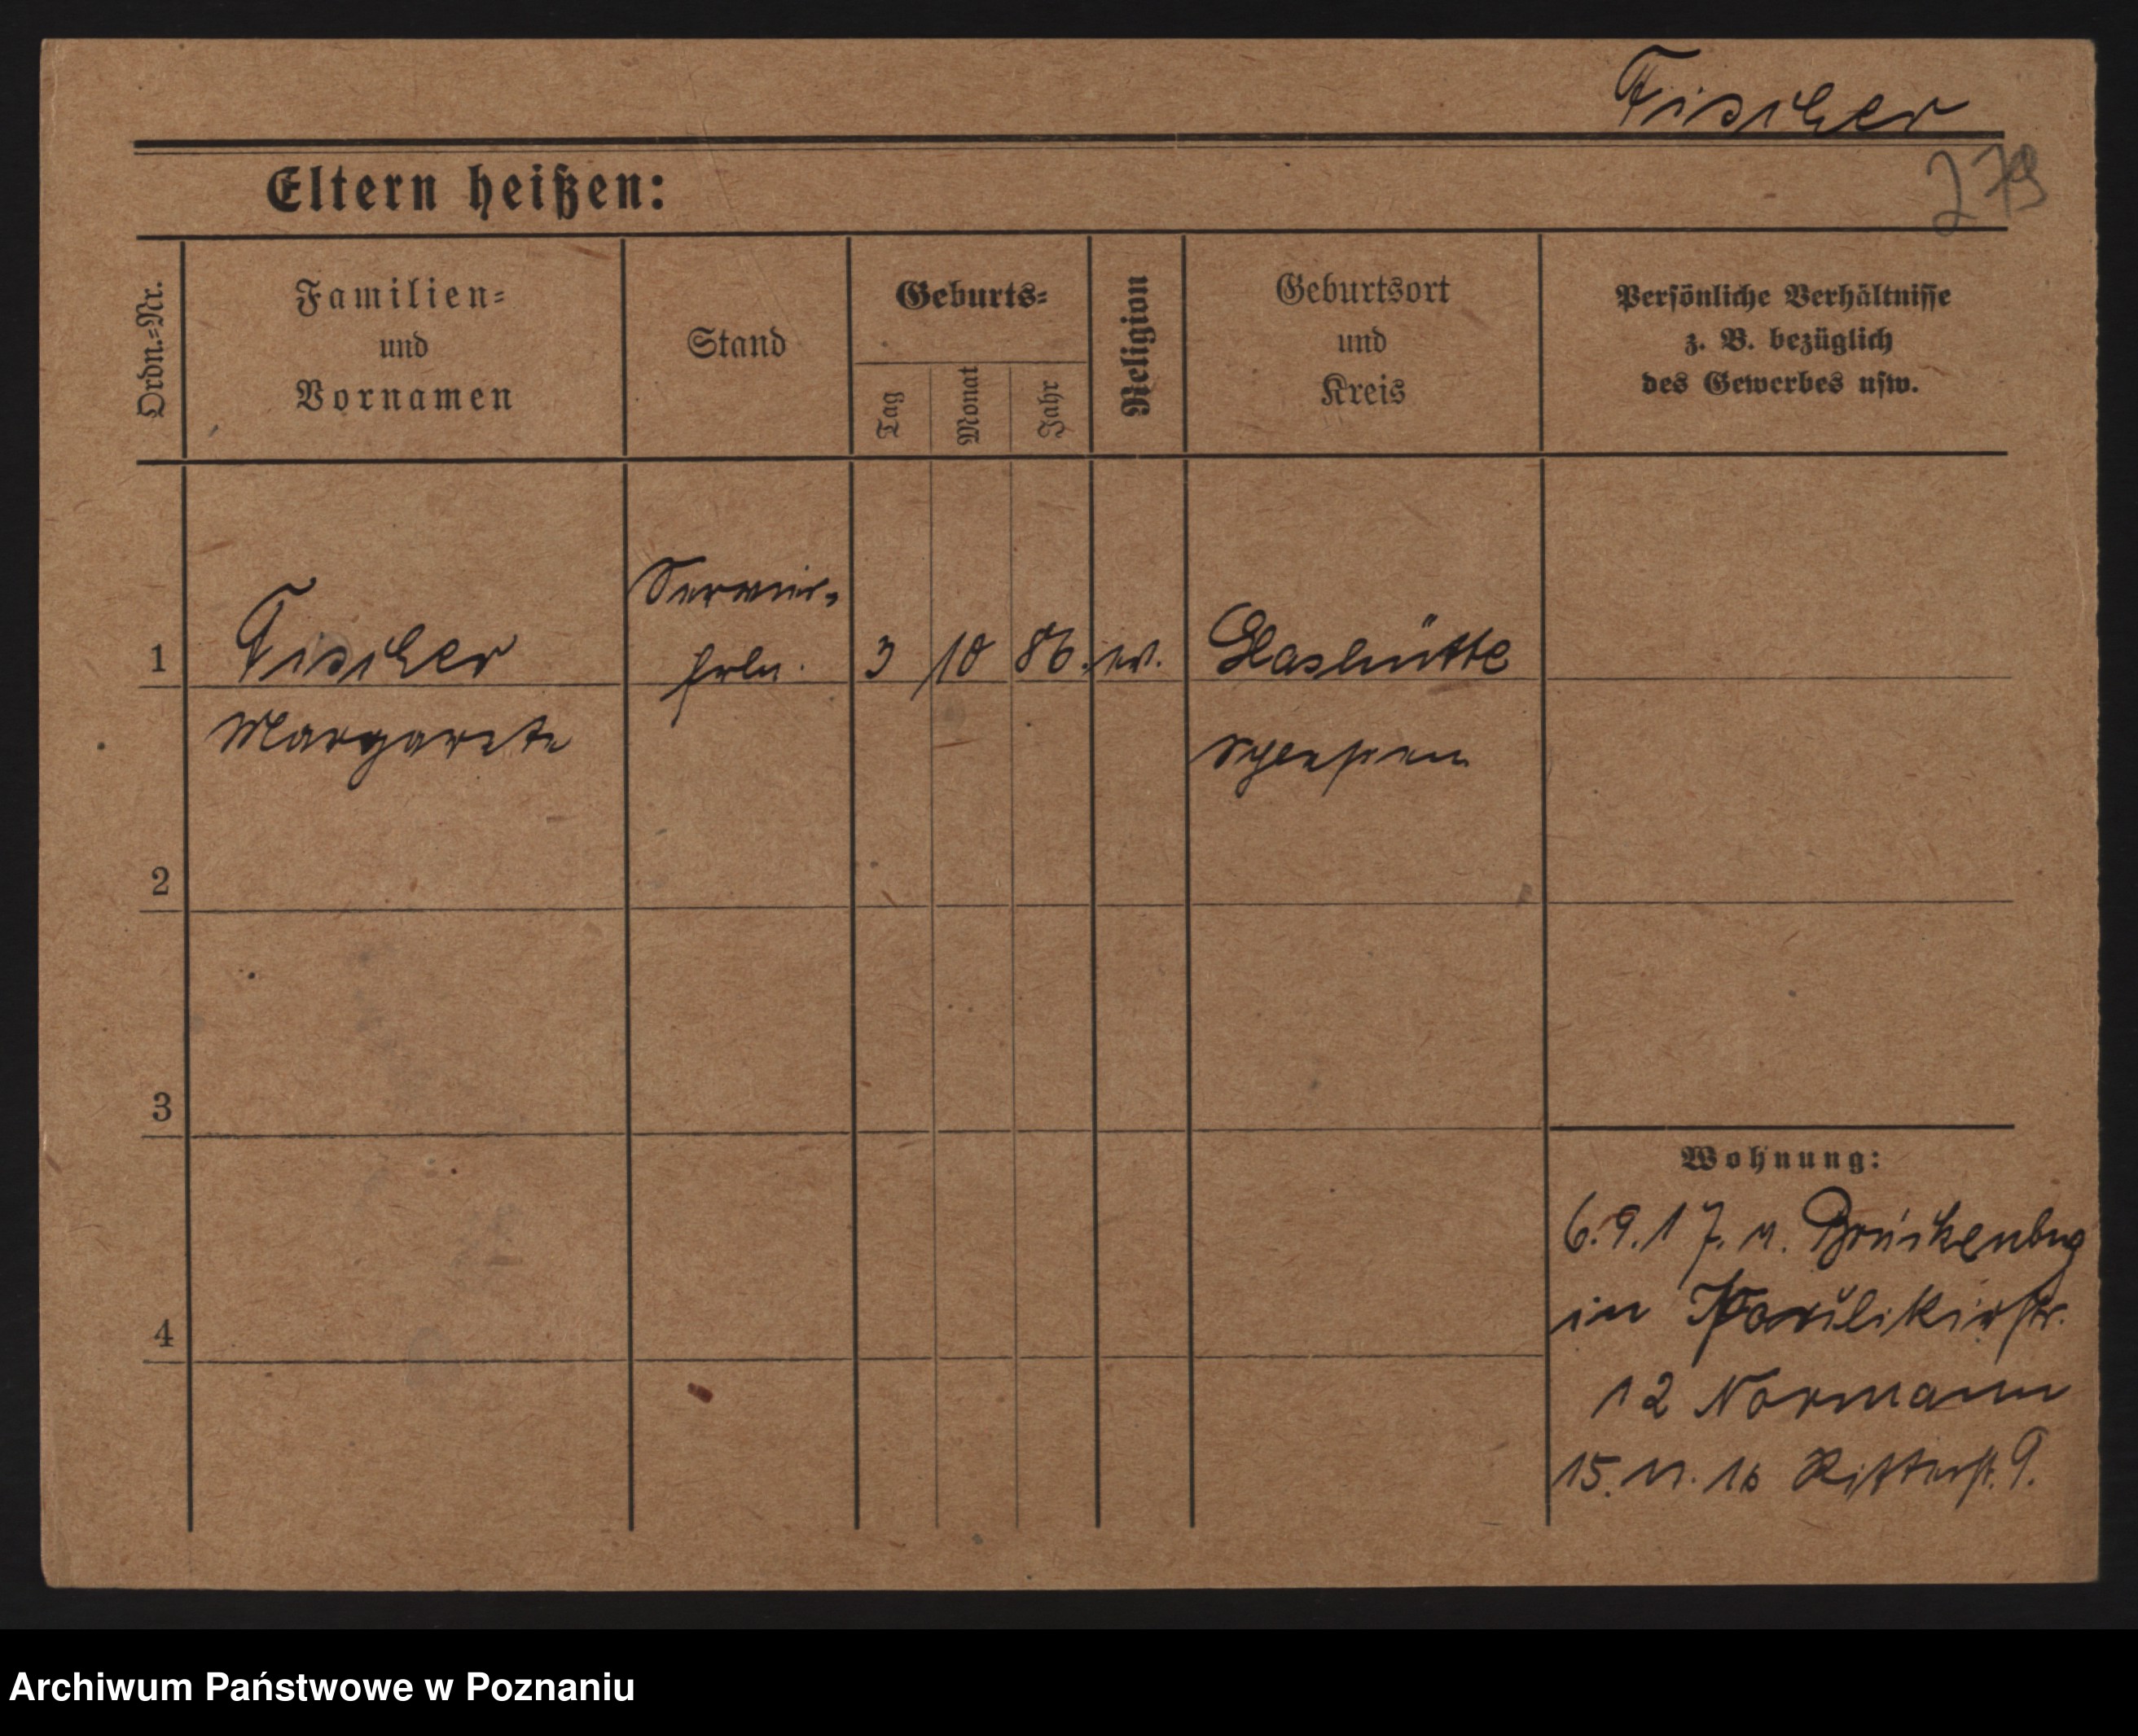 Fischer
279
Eltern heißen:
Ordn.=Nr.
Familien=
und
Vornamen
Stand
Geburts=
Tag
Monat
Jahr
Religion
Geburtsort
und
Kreis
Persönliche Verhältnisse
z. B. bezüglich
des Gewerbes usw.
1
Fischer
Margarete
Servier-
frln.
3 10 86. ev.
Glashütte
2
3
4
Wohnung:
6.9.17. n. Brückenbg
in Paulikirstr.
12 Normann
15. 11. 18 Ritterst. 9.
Archiwum Państwowe w Poznaniu